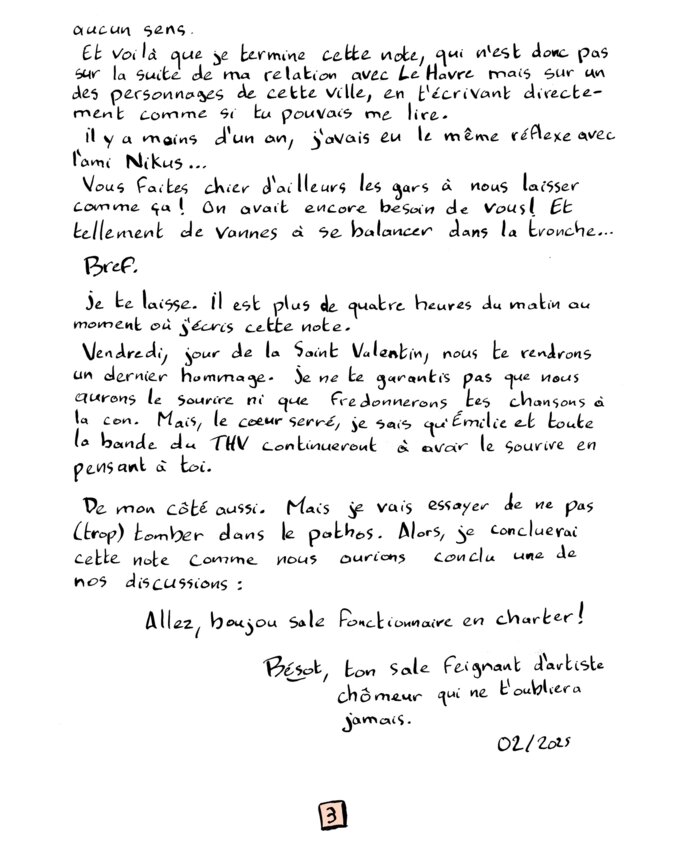 aucun sens.
Et voilà que je termine cette note, qui n'est donc pas
sur la suite de ma relation avec Le Havre mais sur un
des personnages de cette ville, en t'écrivant directe-
ment comme si tu pouvais me lire.
il y a moins d'un an, j'avais eu le même réflexe avec
l'ami Nikus...
Vous faites chier d'ailleurs les gars à nous laisser
comme ça! On avait encore besoin de vous! Et
tellement de vannes à se balancer dans la tronche...
Bref.
je te laisse. il est plus de quatre heures du matin au
moment où j'écris cette note.
Vendredi, jour de la Saint Valentin, nous te rendrons
un dernier hommage. je ne te garantis pas que nous
aurons le sourire ni que fredonnerons tes chansons à
la con. Mais, le cœur serré, je sais qu'Émilie et toute
la bande du THV continueront à avoir le sourire en
pensant à toi.
De mon côté aussi. Mais je vais essayer de ne pas
(trop) tomber dans le pathos. Alors, je concluerai
cette note comme nous aurions conclu une de
nos discussions :
Allez, boujou sale fonctionnaire en charter!
Bésot, ton sale feignant d'artiste
chômeur qui ne t'oubliera
jamais.
02/2025
3